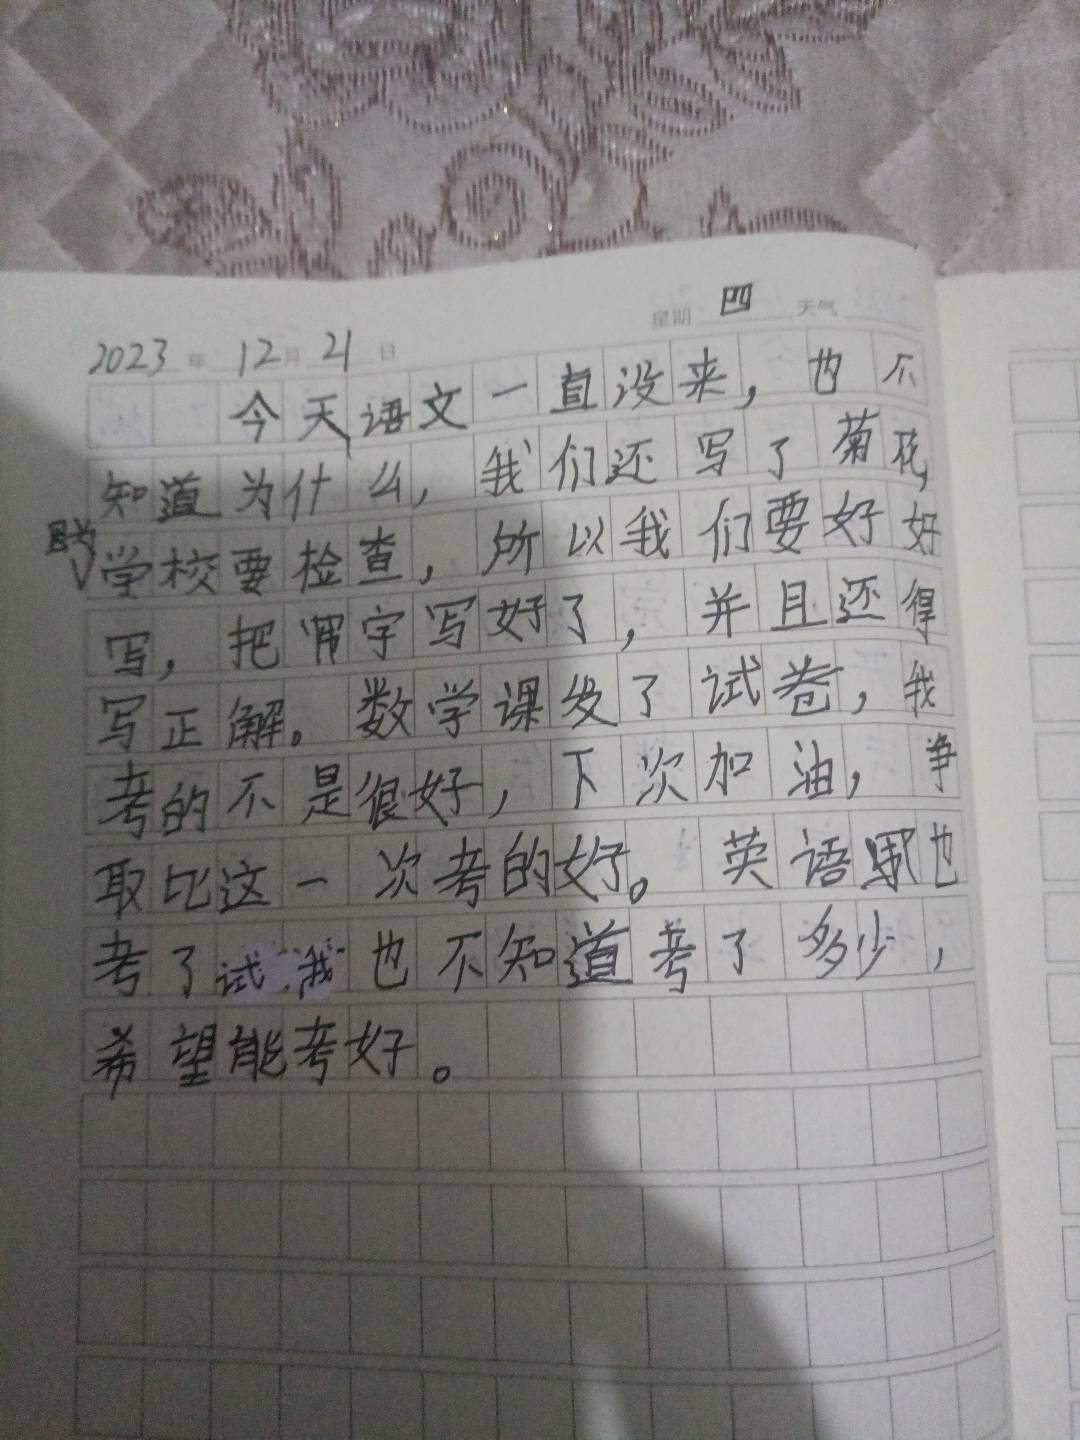 星期 四 天气
2023 年 12 月 21 日
今天语文一直没来，也不
知道为什么，我们还写了菊花，
因为
学校要检查，所以我们要好好
写，把字写好了，并且还得
写正解。数学课发了试卷，我
考的不是很好，下次加油，争
取比这一次考的好。英语也
考了试我也不知道考了多少，
希望能考好。